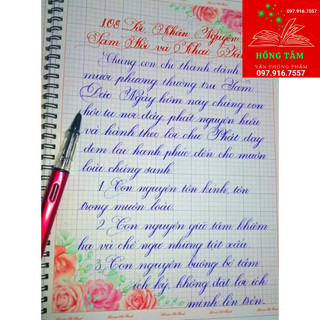 108 Lời Khấn Nguyện
Sám Hối và Khai Tâm
Chúng con chí thành đảnh lễ
mười phương thường trụ Tam
Bảo. Ngày hôm nay chúng con
hội tụ nơi đây phát nguyện hiểu
và hành theo lời chư Phật dạy
đem lại hạnh phúc đến cho muôn
loài chúng sanh.
1, Con nguyện tôn kính, tôn
trọng muôn loài.
2, Con nguyện giữ tâm khiêm
hạ và chế ngự những tật xấu.
3, Con nguyện buông bỏ tâm
ích kỷ, không đặt lợi ích
mình lên trên.
097.916.7557
HỒNG TÂM
VĂN PHÒNG PHẨM
097.916.7557